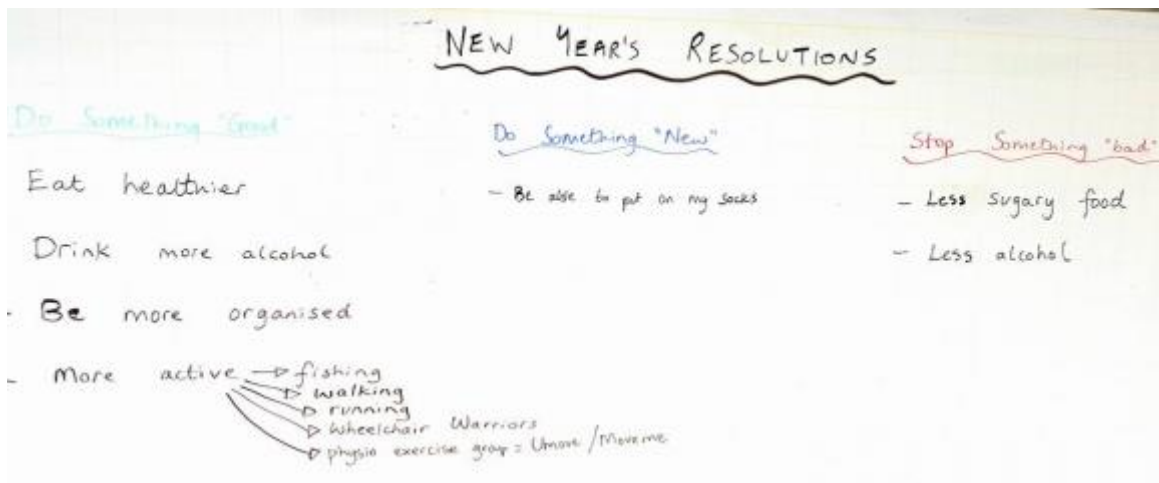 NEW YEAR'S RESOLUTIONS
Do Something "Good"
Eat healthier
Drink more alcohol
- Be more organised
- More active → fishing
→ walking
→ running
→ Wheelchair Warriors
→ physio exercise group = Umove / Moveme
Do Something "New"
- Be able to put on my socks
Stop Something "bad"
- Less sugary food
- Less alcohol